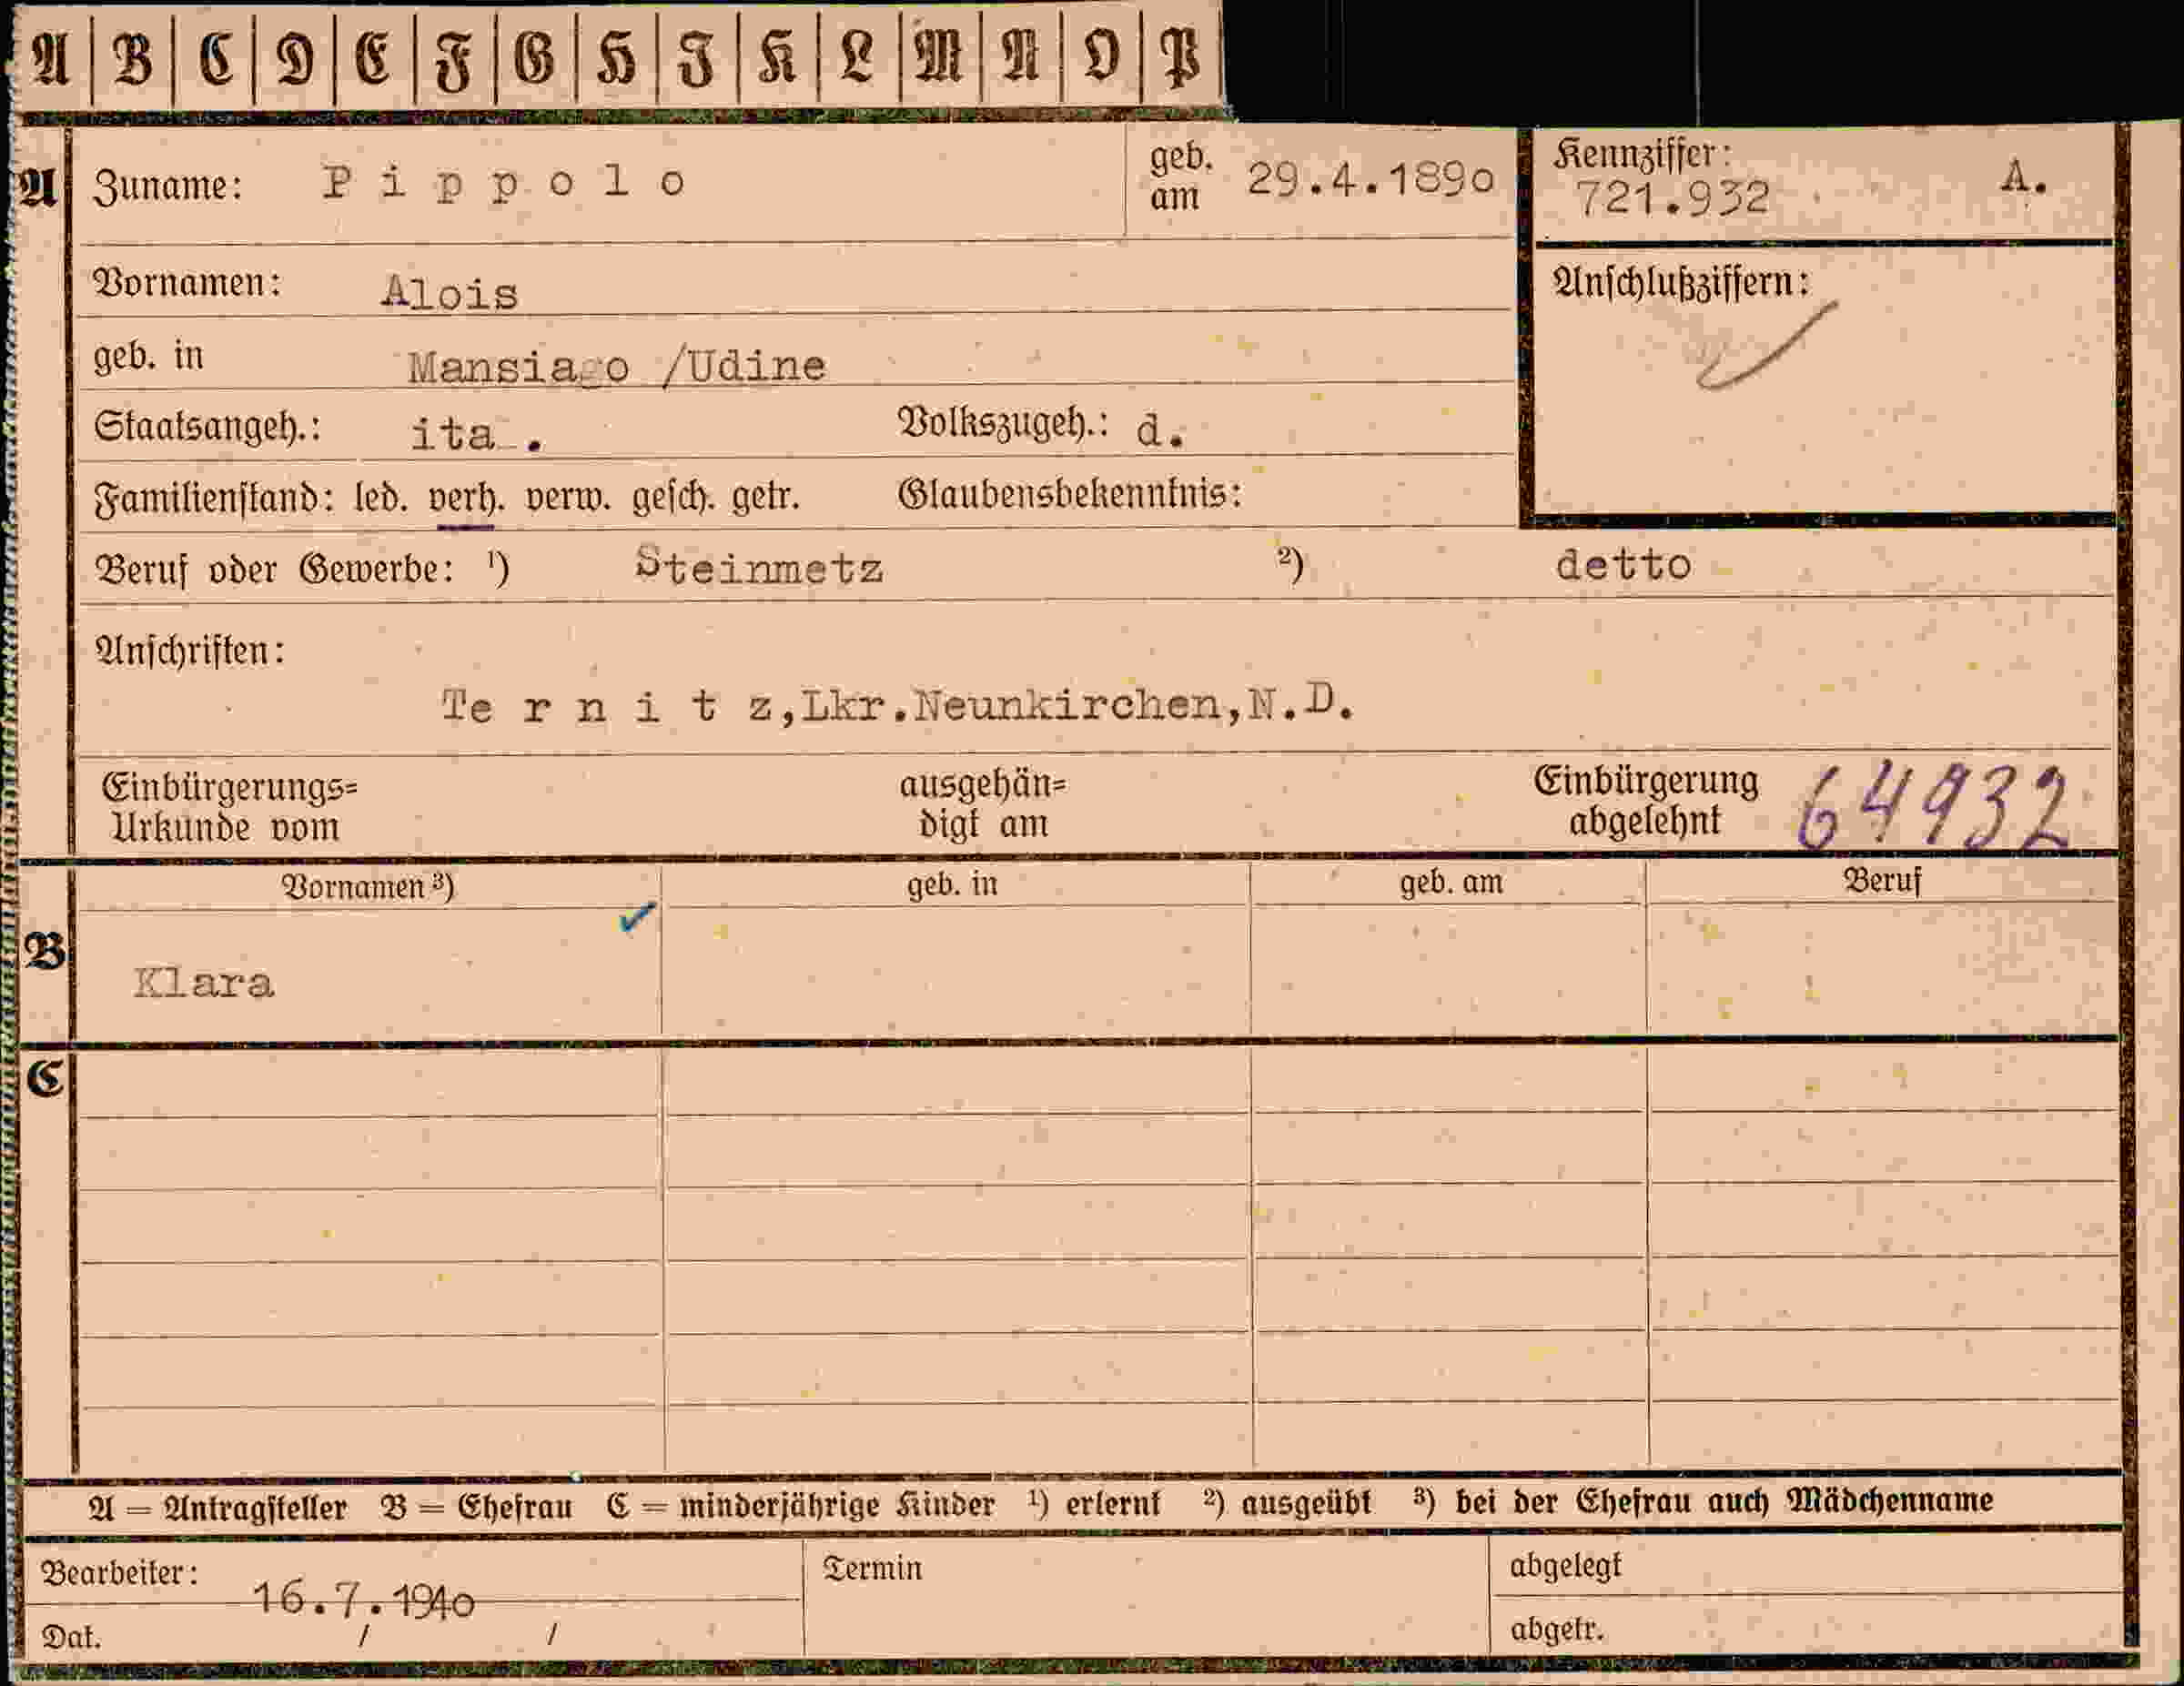 A B C D E F G H I K L M N O P
A Zuname: Pippolo geb. am 29.4.1890 Kennziffer: 721.932 A.
Vornamen: Alois Anschlußziffern:
geb. in Mansiago /Udine
Staatsangeh.: ita. Volkszugeh.: d.
Familienstand: led. verh. verw. gesch. getr. Glaubensbekenntnis:
Beruf oder Gewerbe: ¹) Steinmetz ²) detto
Anschriften:
Ternitz,Lkr.Neunkirchen,N.D.
Einbürgerungs= ausgehän= Einbürgerung 64932
Urkunde vom digt am abgelehnt
Vornamen ³) geb. in geb. am Beruf
B
Klara
C
A = Antragsteller B = Ehefrau C = minderjährige Kinder ¹) erlernt ²) ausgeübt ³) bei der Ehefrau auch Mädchenname
Bearbeiter: Termin abgelegt
16.7.1940
Dat. / / abgetr.